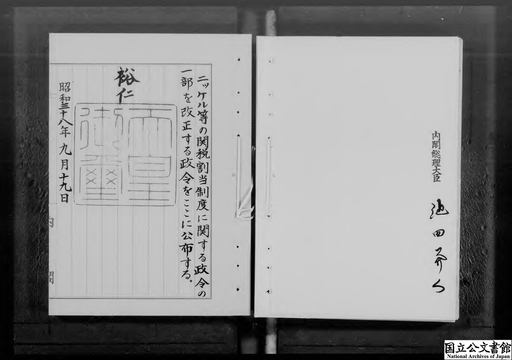 内閣総理大臣 池田勇人
ニッケル等の関税割当制度に関する政令の
一部を改正する政令をここに公布する。
裕仁
天皇御璽
昭和三十八年九月十九日
内閣
国立公文書館
National Archives of Japan